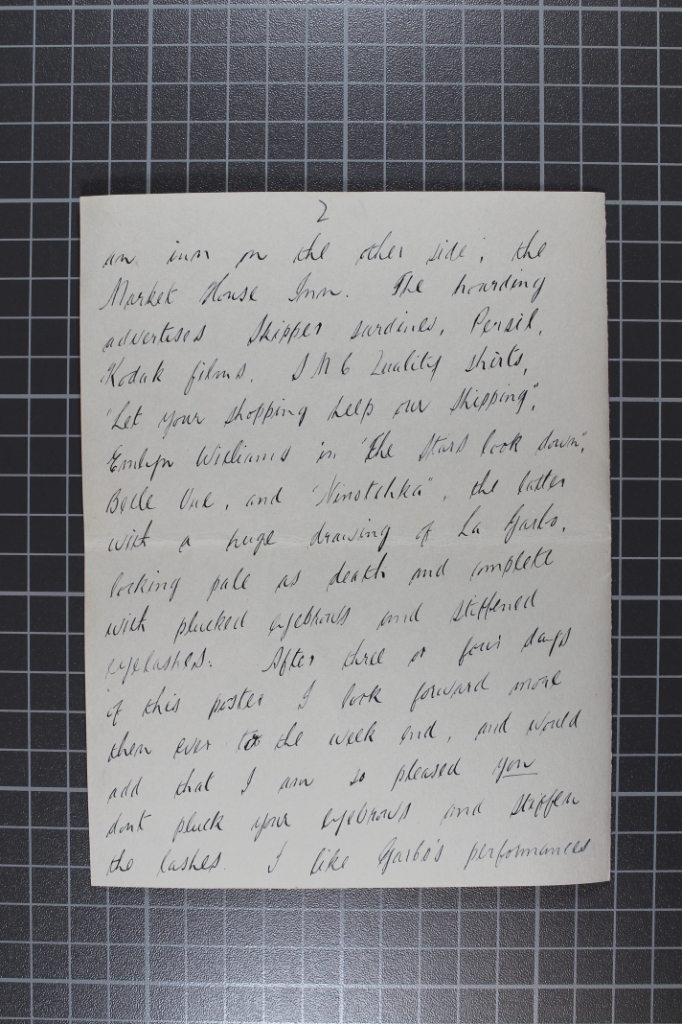 2
an inn on the other side; the
Market House Inn. The hoarding
advertises Skipper sardines, Persil,
Kodak films, SMG Quality shirts,
"Let your shopping help our shipping",
Emlyn Williams in "The Stars look down",
Belle Vue, and "Ninotchka", the latter
with a huge drawing of La Garbo,
looking pale as death and complete
with plucked eyebrows and stiffened
eyelashes. After three or four days
of this poster I look forward more
then ever to the week end, and would
add that I am so pleased you
dont pluck your eyebrows and stiffen
the lashes. I like Garbo's performances